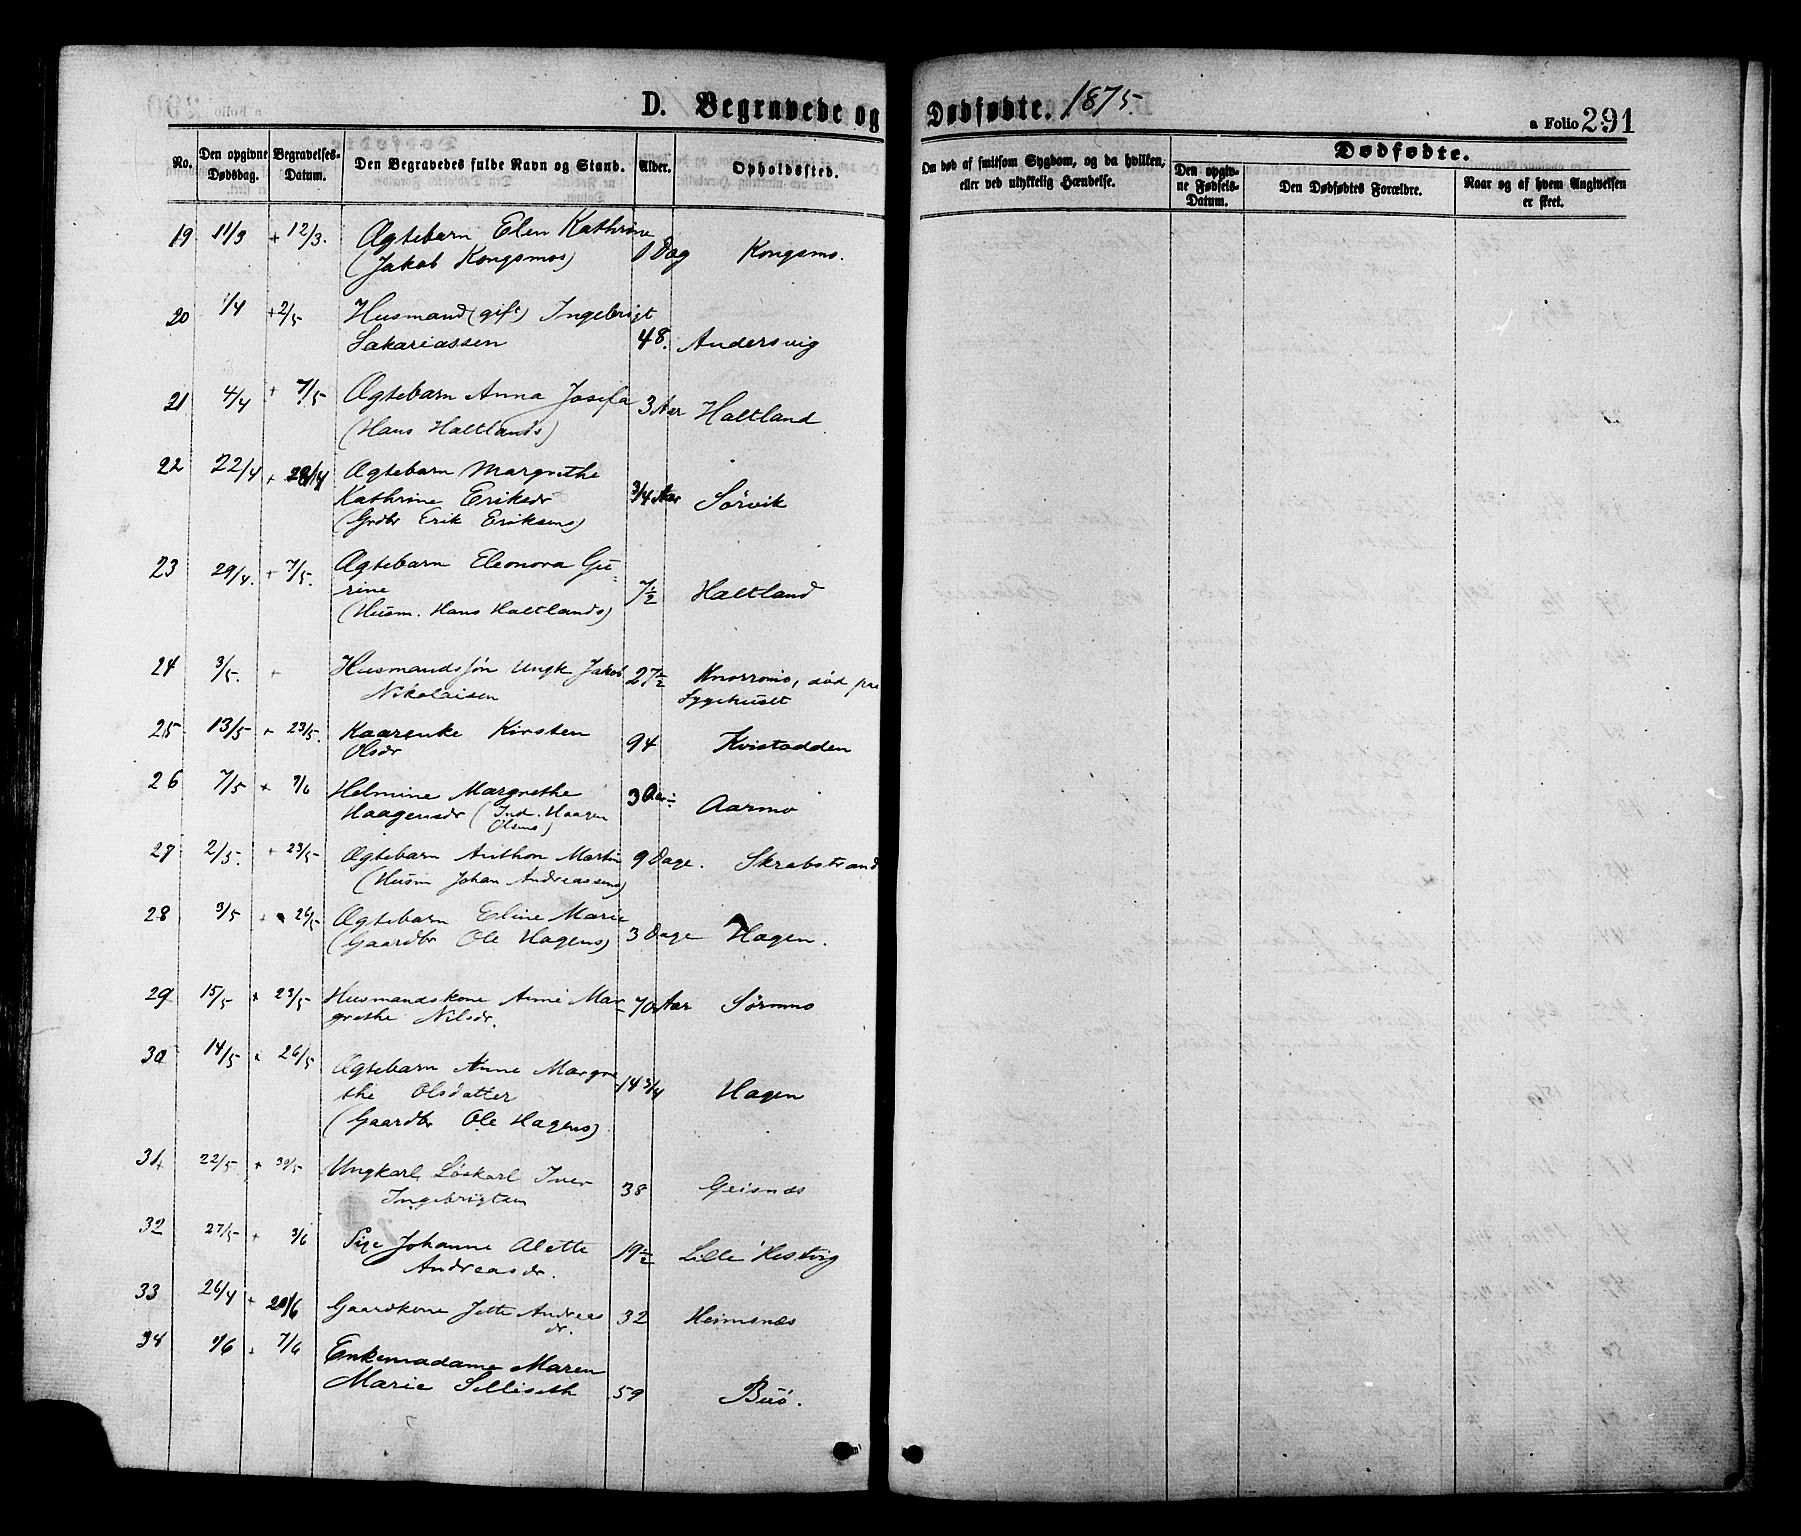 D. Begravede og Dødfødte. 1875. a Folio 291
No. Den opgivne Dødsdag. Begravelses-Datum. Den Begravedes fulde Navn og Stand. Alder. Opholdssted. Om død af smitsom Sygdom, og da hvilken, eller ved ulykkelig Hændelse. Dødfødte.
Den opgivne Fødsels-Datum. Den Dødfødtes Forældre. Naar og af hvem Angivelsen er skeet.
19 11/3 + 12/3. Ægtebarn Elen Kathrine
(Jakob Kongsmos) 1 Dag Kongsmo.
20 1/4 + 2/5 Husmand (gift) Ingebrigt
Sakariassen 48. Andersvig
21 4/4 + 7/5 Ægtebarn Anna Josefa 3 Aar Haltland
(Hans Haltlands)
22 22/4 + 28/4 Ægtebarn Margrethe
Kathrine Eriksdr 3/4 Aar Sørvik
(Grdbr Erik Eriksens)
23 29/4. + 7/5. Ægtebarn Eleonora Gu-
rine 7 1/2 Haltland
(Husm. Hans Haltlands)
24 3/5. Husmandssøn Ungk Jakob 27 1/2 Knorromo, død paa
Nikolaisen Sygehuset
25 13/5 + 23/5. Kaarenke Kirsten
Olsdr 94 Kvistadden
26 7/5 + 7/6 Helmine Margrethe 3 Aar
Haagensdr (Ind. Haagen Aarmo
Olsens)
27 2/5. + 23/5 Ægtebarn Anthon Martin 9 Dage. Skrabstrand
(Husm Johan Andreassens)
28 3/5 + 26/5 Ægtebarn Eline Marie
(Gaardbr Ole Hagens) 3 Dage Hagen.
29 15/5 + 23/5 Husmandskone Anne Mar
grethe Nilsdr. 70 Aar Sørmmo
30 14/5 + 26/5 Ægtebarn Anne Margre
the Olsdatter 14 3/4 Hagen
(Gaardbr Ole Hagens)
31 22/5 + 30/5 Ungkarl Løskarl Iver
Ingebrigtsen 38 Geisnæs
32 27/5 + 3/6 Pige Johanne Alette 19 1/2 Lille Kestvig
Andreasdr.
33 26/4 + 20/6 Gaardkone Jette Andreas
dr. 32 Heimsnæs
34 1/6 7/6 Enkemadame Maren
Marie Selliseth 59 Buø.